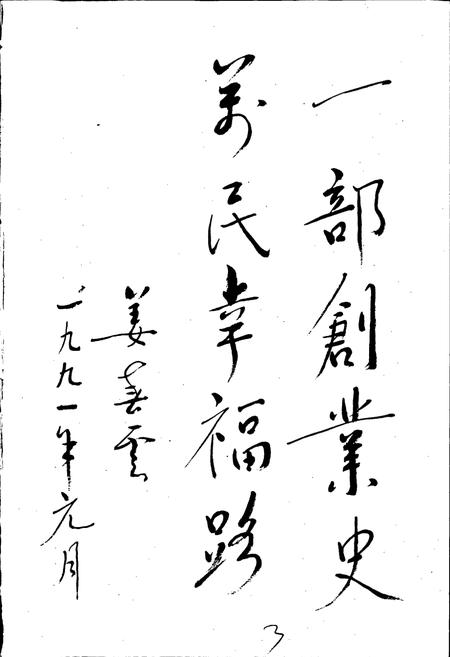 一部創業史
萬民幸福路
姜春雲
一九九一年元月
3